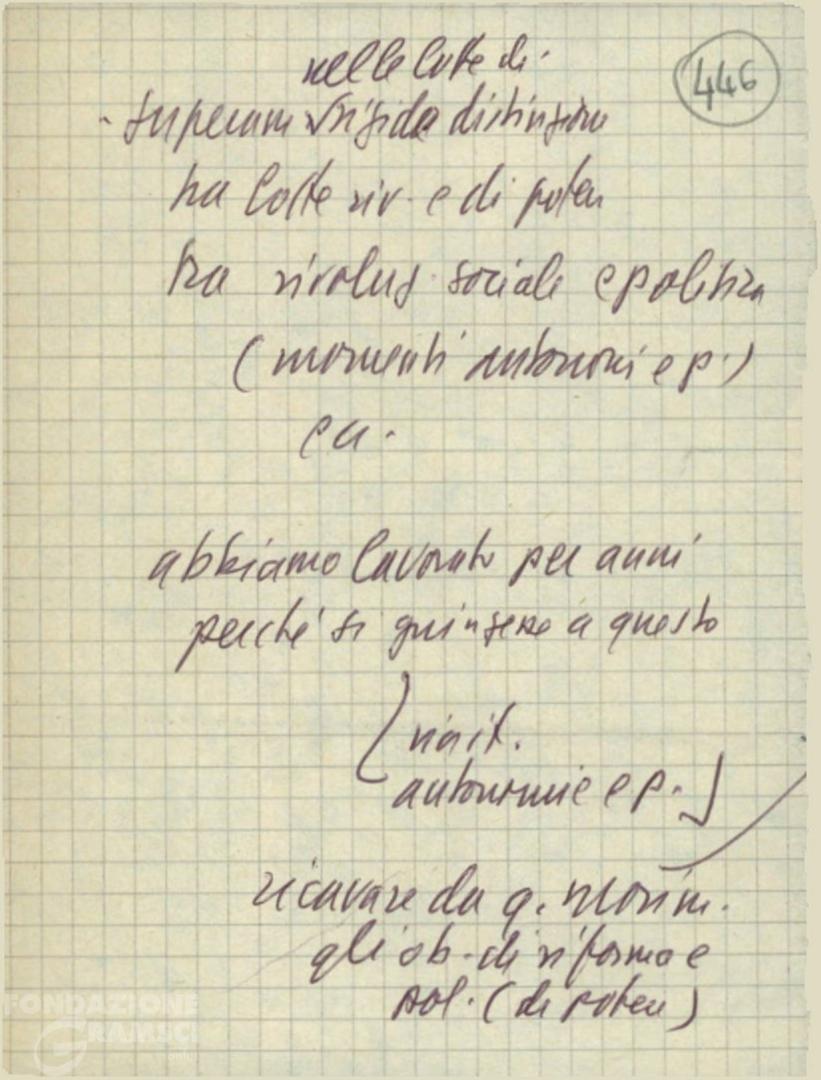 446
nelle lotte di
- superam rigida distinzione
tra lotte riv. e di poten
tra rivoluz. sociale e politica
(momenti autonomi e p.)
ecc.
abbiamo lavorato per anni
perché si giungesse a questo
autonomie e p.
ricavare da q. movim.
gli ob. di riforma e
pol. (di poten)
FONDAZIONE
GRAMSCI